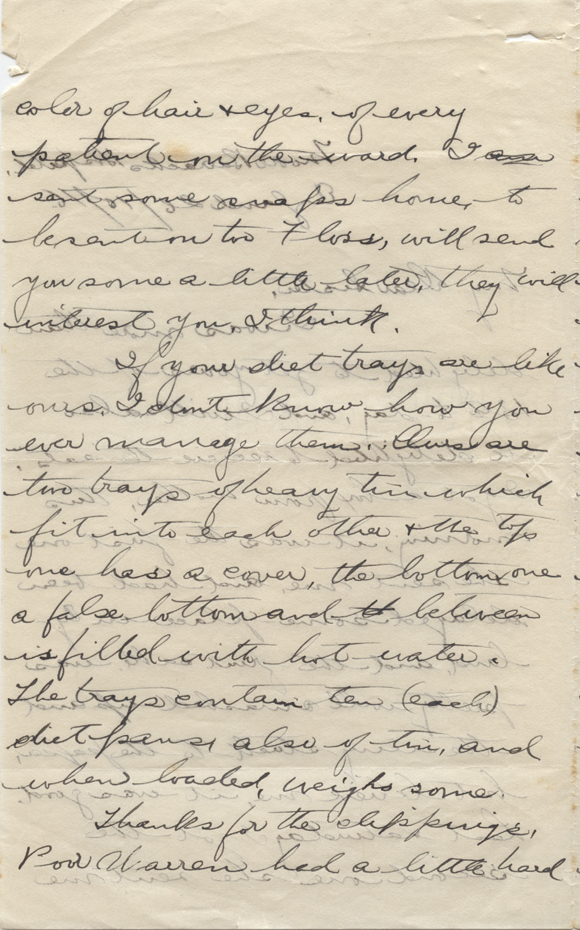 color of hair & eyes, of every
patient on the ward. I
sent some snaps home, to
be sent on to Floss, will send
you some a little later, they will
interest you I think.
If your diet trays are like
ours, I don't know how you
ever manage them. Ours are
two trays of heavy tin which
fit into each other & the top
one has a cover, the bottom one
a false bottom and between
is filled with hot water.
The trays contain ten (each)
diet pans, also of tin, and
when loaded, weighs some.
Thanks for the clippings,
Poor Warren had a little hard